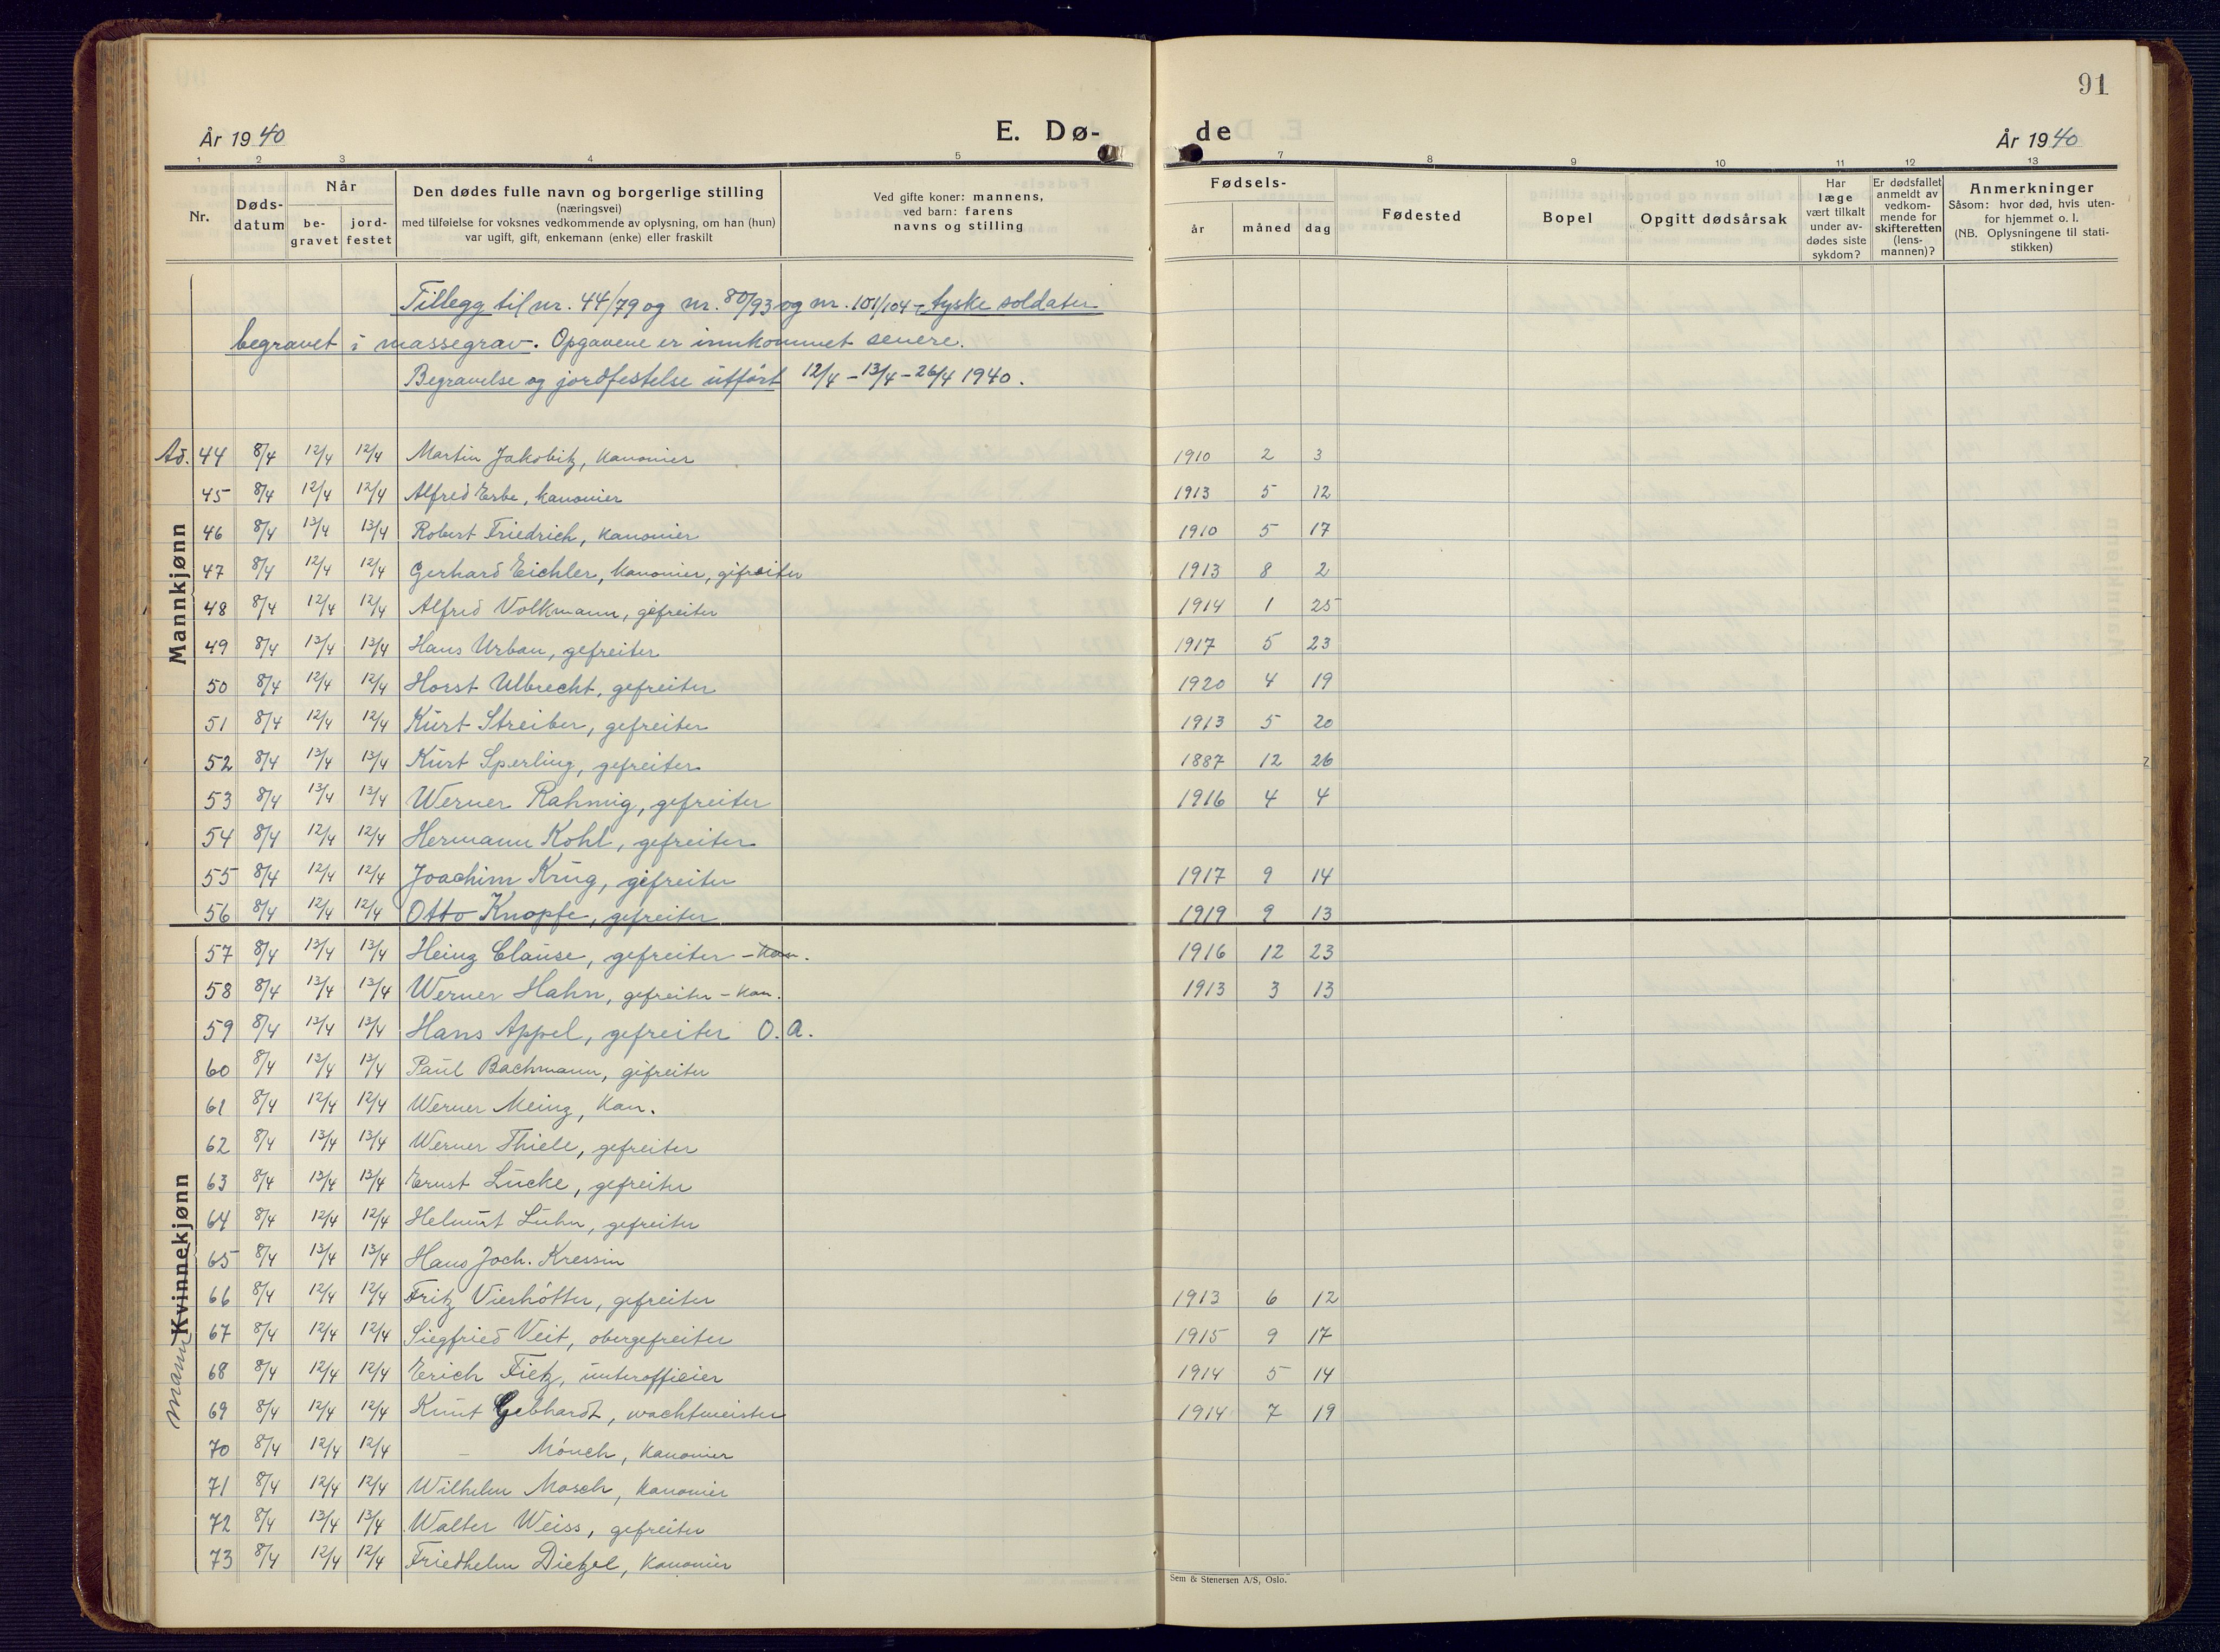 91
År 1940
E. Dø-
de
År 1940
1 2 3 4 5 7 8 9 10 11 12 13
Nr.
Døds-
datum
Når
be-
gravet
jord-
festet
Den dødes fulle navn og borgerlige stilling
(næringsvei)
med tilføielse for voksnes vedkommende av oplysning, om han (hun)
var ugift, gift, enkemann (enke) eller fraskilt
Ved gifte koner: mannens,
ved barn: farens
navns og stilling
Fødsels-
år måned dag
Fødested
Bopel
Opgitt dødsårsak
Har
læge
vært tilkalt
under av-
dødes siste
sykdom?
Er dødsfallet
anmeldt av
vedkom-
mende for
skifteretten
(lens-
mannen)?
Anmerkninger
Såsom: hvor død, hvis uten-
for hjemmet o. l.
(NB. Oplysningene til stati-
stikken)
Tillegg til nr. 44/79 og nr. 80/93 og nr. 101/104 - tyske soldater
begravet i massegrav. Opgavene er innkommet senere.
Begravelse og jordfestelse utført 12/4 - 13/4 - 26/4 1940.
Mannkjønn
Ad. 44 8/4 12/4 12/4 Martin Jakobitz, kanonier 1910 2 3
45 8/4 12/4 12/4 Alfred Erbe, kanonier 1913 5 12
46 8/4 13/4 13/4 Robert Friedrich, kanonier 1910 5 17
47 8/4 12/4 12/4 Gerhard Eichler, kanonier, gefreiter 1913 8 2
48 8/4 12/4 12/4 Alfred Volkmann, gefreiter 1914 1 25
49 8/4 13/4 13/4 Hans Urban, gefreiter 1917 5 23
50 8/4 12/4 12/4 Horst Ulbrecht, gefreiter 1920 4 19
51 8/4 12/4 12/4 Kurt Streiber, gefreiter 1913 5 20
52 8/4 13/4 13/4 Kurt Sperling, gefreiter 1887 12 26
53 8/4 13/4 13/4 Werner Rahmig, gefreiter 1916 4 4
54 8/4 12/4 12/4 Hermann Kohl, gefreiter
55 8/4 12/4 12/4 Joachim Krug, gefreiter 1917 9 14
56 8/4 12/4 12/4 Otto Knopfe, gefreiter 1919 9 13
57 8/4 13/4 13/4 Heinz Clause, gefreiter - Kan. 1916 12 23
58 8/4 13/4 13/4 Werner Hahn, gefreiter - Kan. 1913 3 13
59 8/4 13/4 13/4 Hans Appel, gefreiter O.A.
60 8/4 13/4 13/4 Paul Bachmann, gefreiter
61 8/4 12/4 12/4 Werner Meinz, Kan.
62 8/4 13/4 13/4 Werner Thiele, gefreiter
63 8/4 13/4 13/4 Ernst Lücke, gefreiter
64 8/4 12/4 12/4 Helmut Luhn, gefreiter
65 8/4 13/4 13/4 Hans Joch. Kressin
66 8/4 12/4 12/4 Fritz Vierhötter, gefreiter 1913 6 12
67 8/4 12/4 12/4 Siegfried Veit, obergefreiter 1915 9 17
68 8/4 12/4 12/4 Erich Fietz, unterofficier 1914 5 14
69 8/4 12/4 12/4 Knut Gebhardt, wachtmeister 1914 7 19
70 8/4 12/4 12/4 - Mönch, kanonier
71 8/4 12/4 12/4 Wilhelm Mosch, kanonier
72 8/4 13/4 13/4 Walter Weiss, gefreiter
73 8/4 12/4 12/4 Friedhelm Dietzel, kanonier
Kvinnekjønn
Mann
Sem & Stenersen A/S, Oslo.